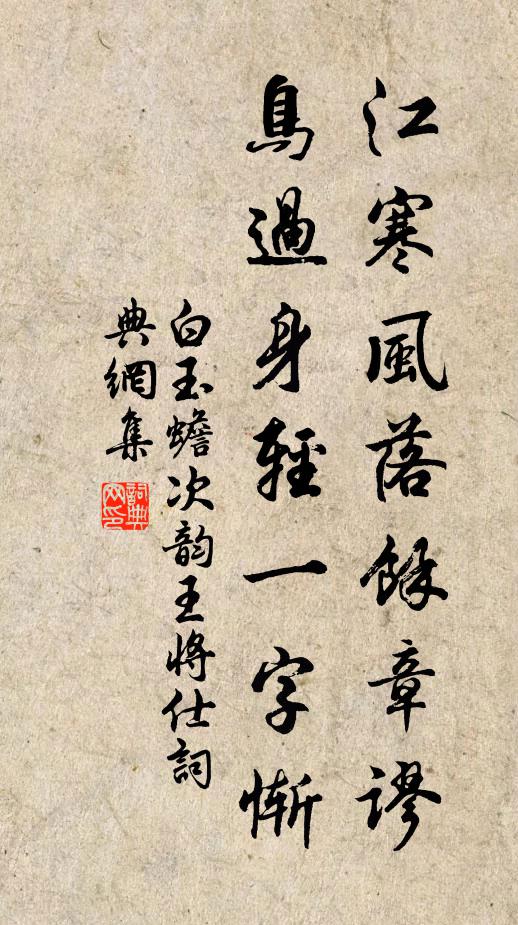 江寒風落餘章謬
鳥過身輕一字慚
白玉蟾次韵王將仕詞
典網集
詞典
网印